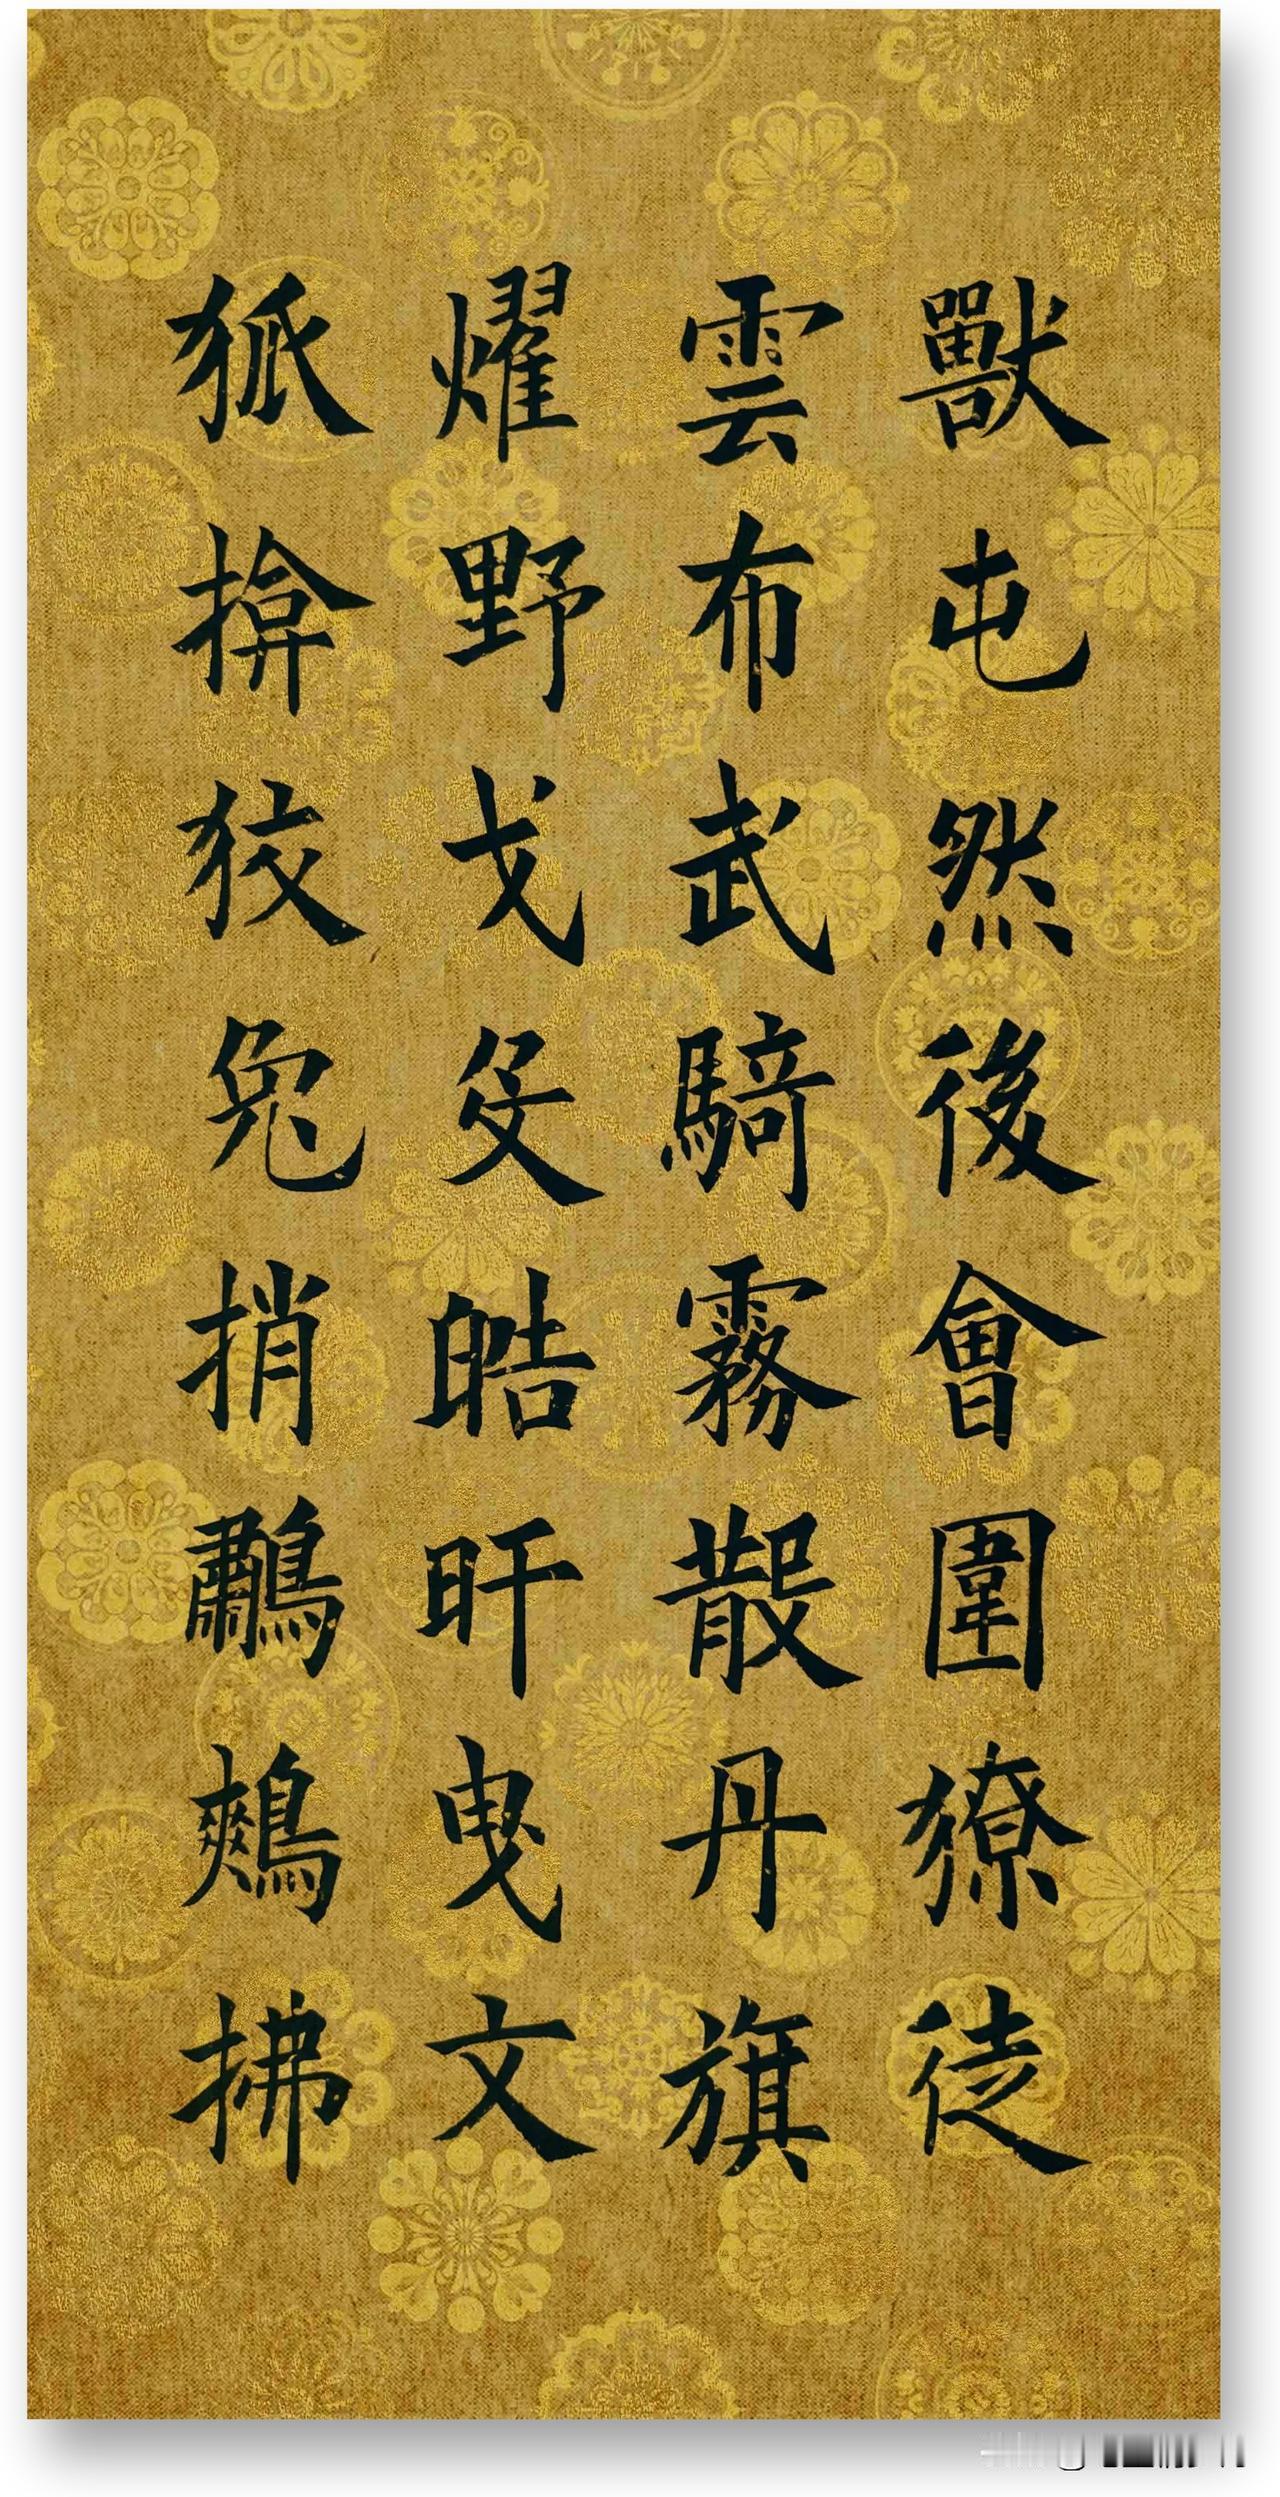 獸屯然後會圍獠徒
雲布武騎霧散丹旗
燿野戈殳皓旰曳文
狐揜狡兔捎鷫鷞拂